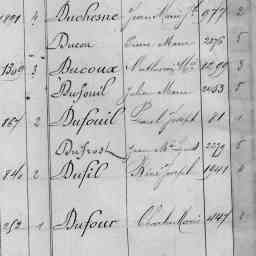 4 Duchesne Jean Marie 977 2
Ducou Pierre Marie 2276 5
3 Ducoux Mathurin 1299 3
Dufouil Julien Marie 5
867 2 Dufouil Paul Joseph 81 1
Dufrost Jean 2279 5
840 2 Dufil René Joseph 1941
252 1 Dufour Charles Marie 4147 2